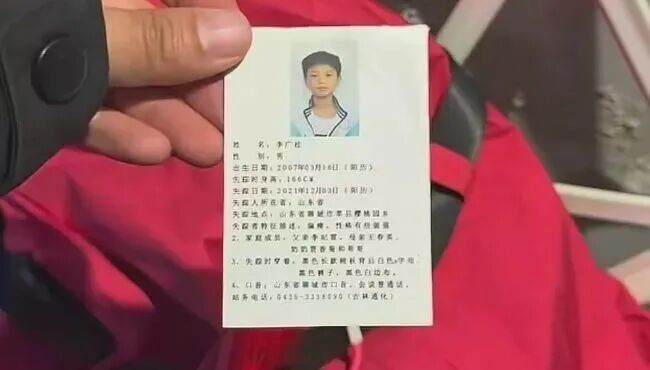 姓 名：李广桂
性 别：男
出生日期：2007年03月16日（阳历）
失踪时身高：166CM
失踪日期：2021年12月03日（阳历）
失踪人所在省：山东省
失踪地点：山东省聊城市莘县樱桃园乡
失踪者特征描述：偏瘦，性格有些倔强
2、家庭成员：父亲李纪富，母亲王春英，
奶奶贾香菊和哥哥
3、失踪时穿着：黑色长款棉袄背后白色s字母
黑色裤子，黑色白边布。
4、口音：山东省聊城市口音，会说普通话。
站务电话：0435-3338090（吉林通化）